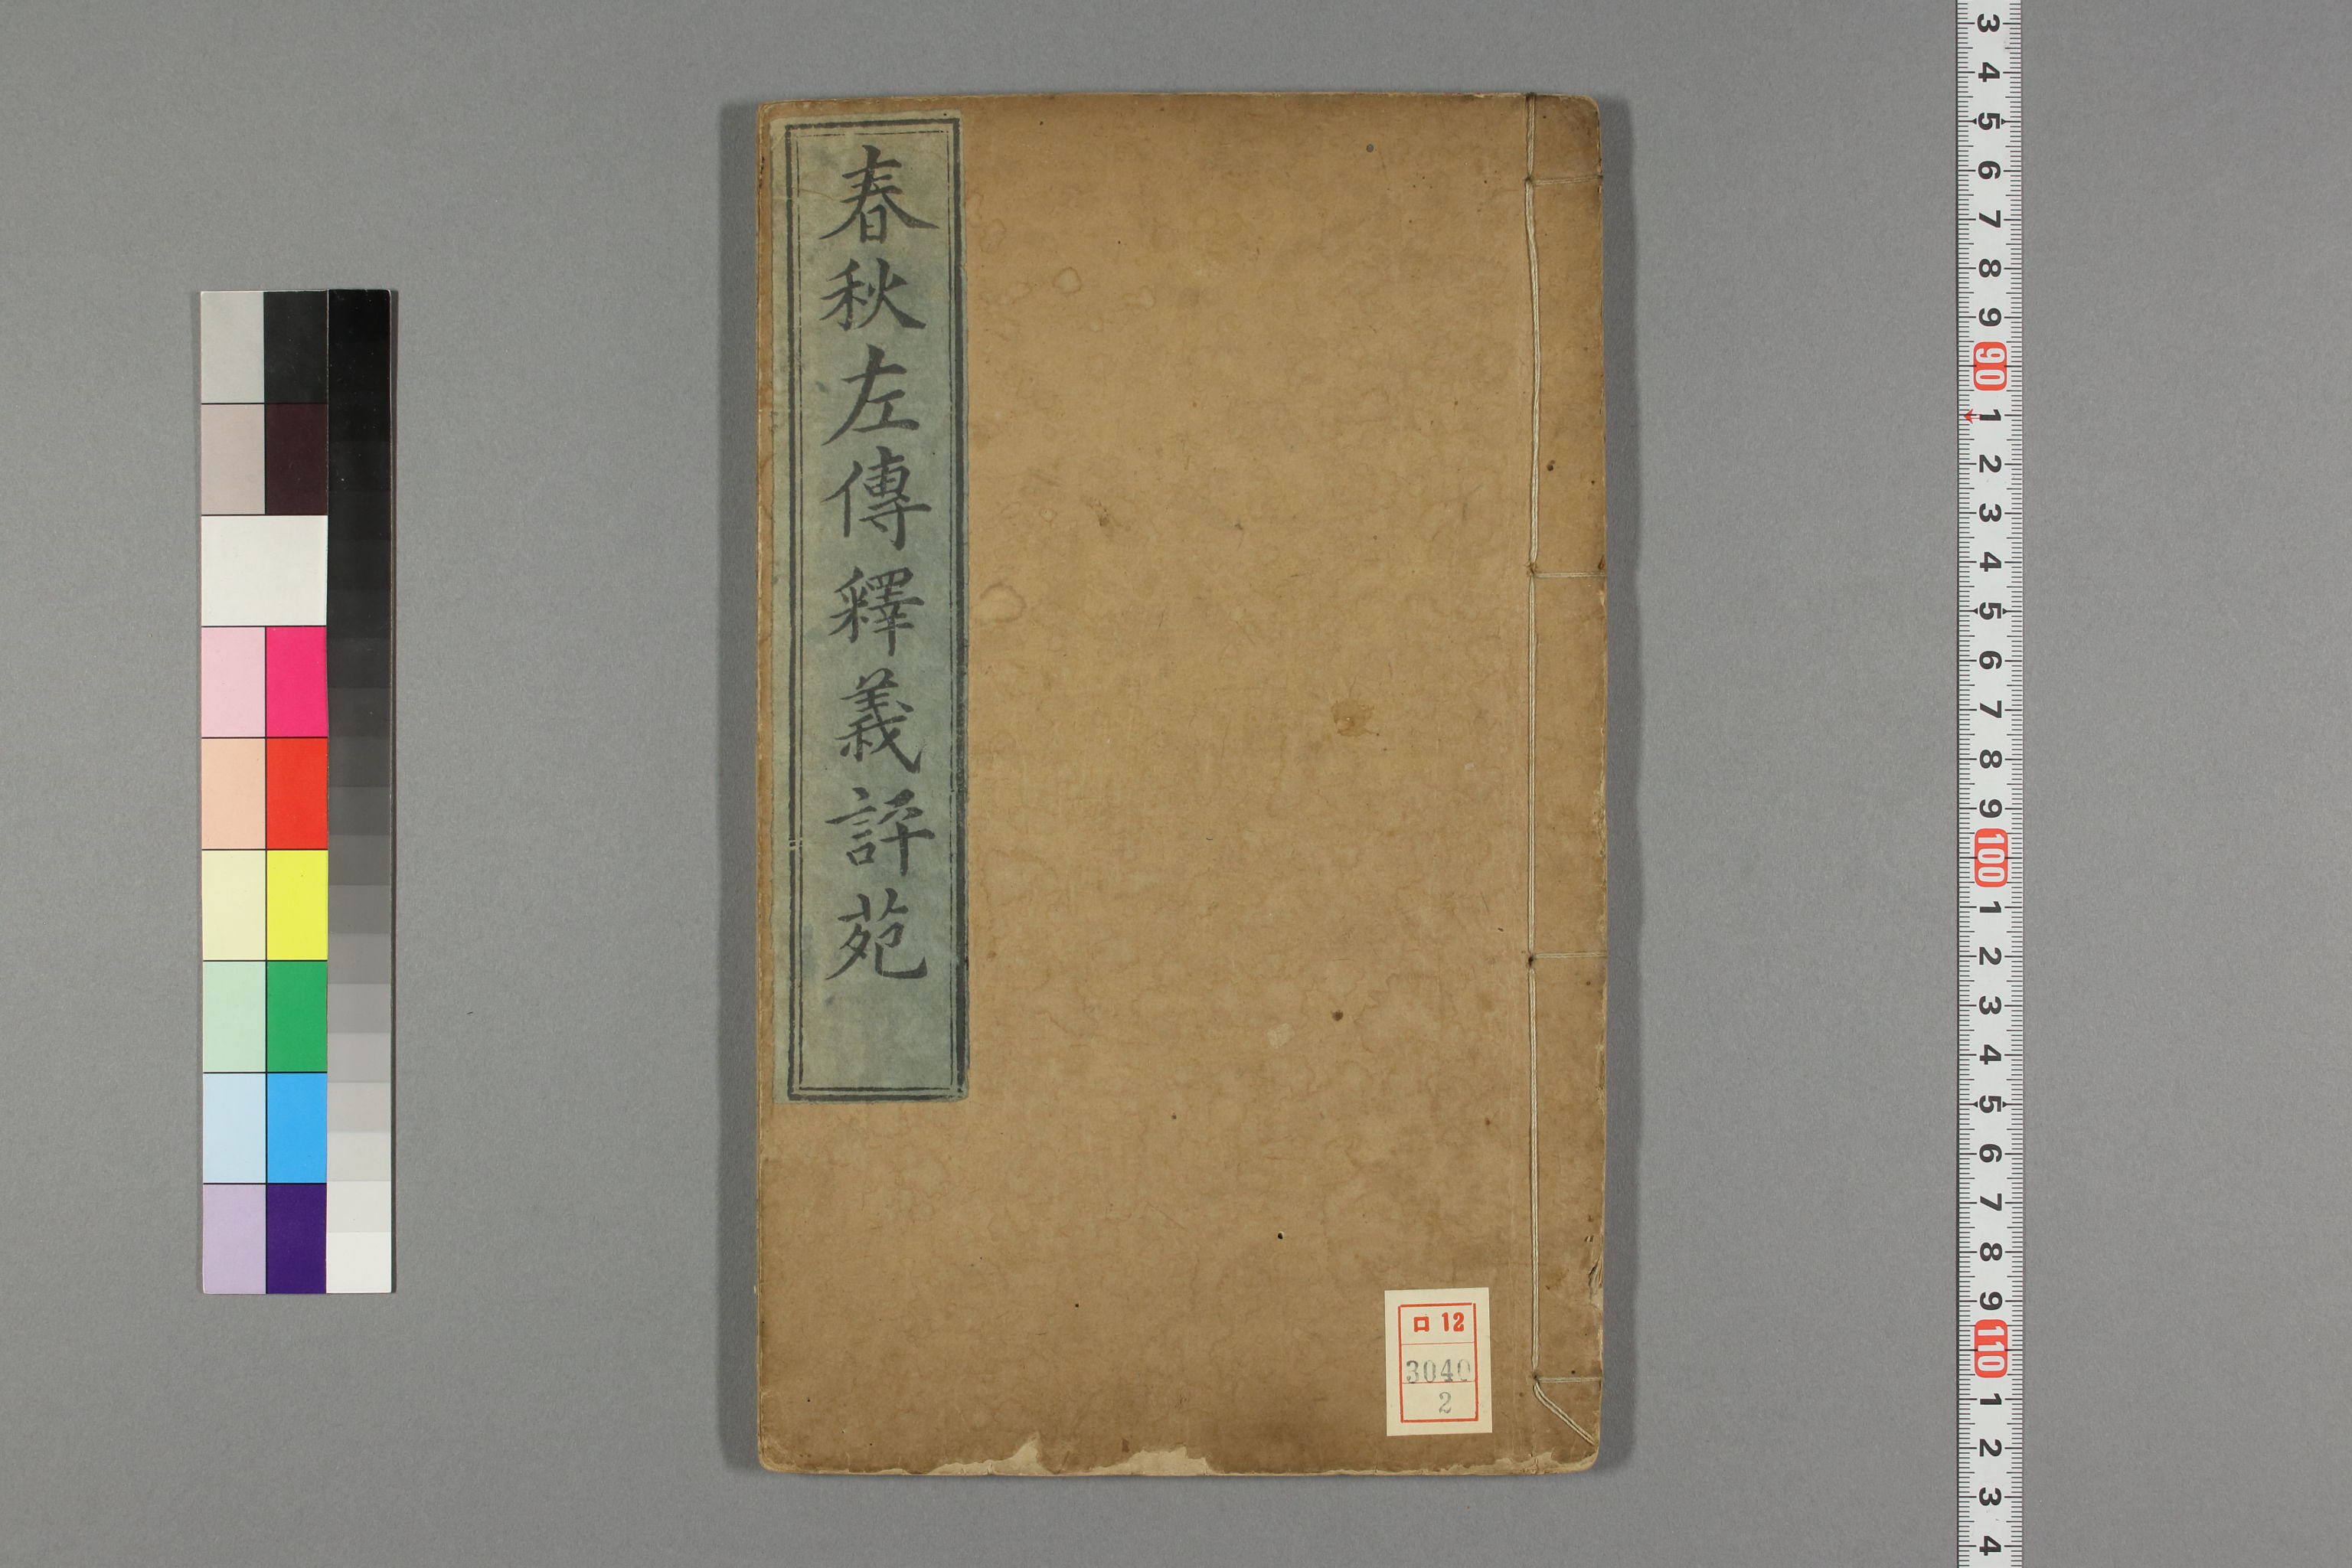 春秋左傳釋義評苑
ロ 12
3040
2
3
4
5
6
7
8
9
90
1
2
3
4
5
6
7
8
9
100
1
2
3
4
5
6
7
8
9
110
1
2
3
4